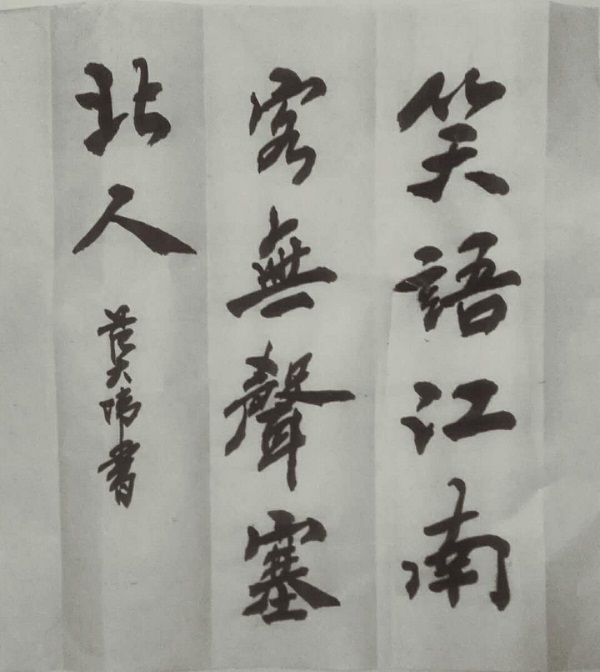 笑語江南
客無聲塞
北人
范大瑋書